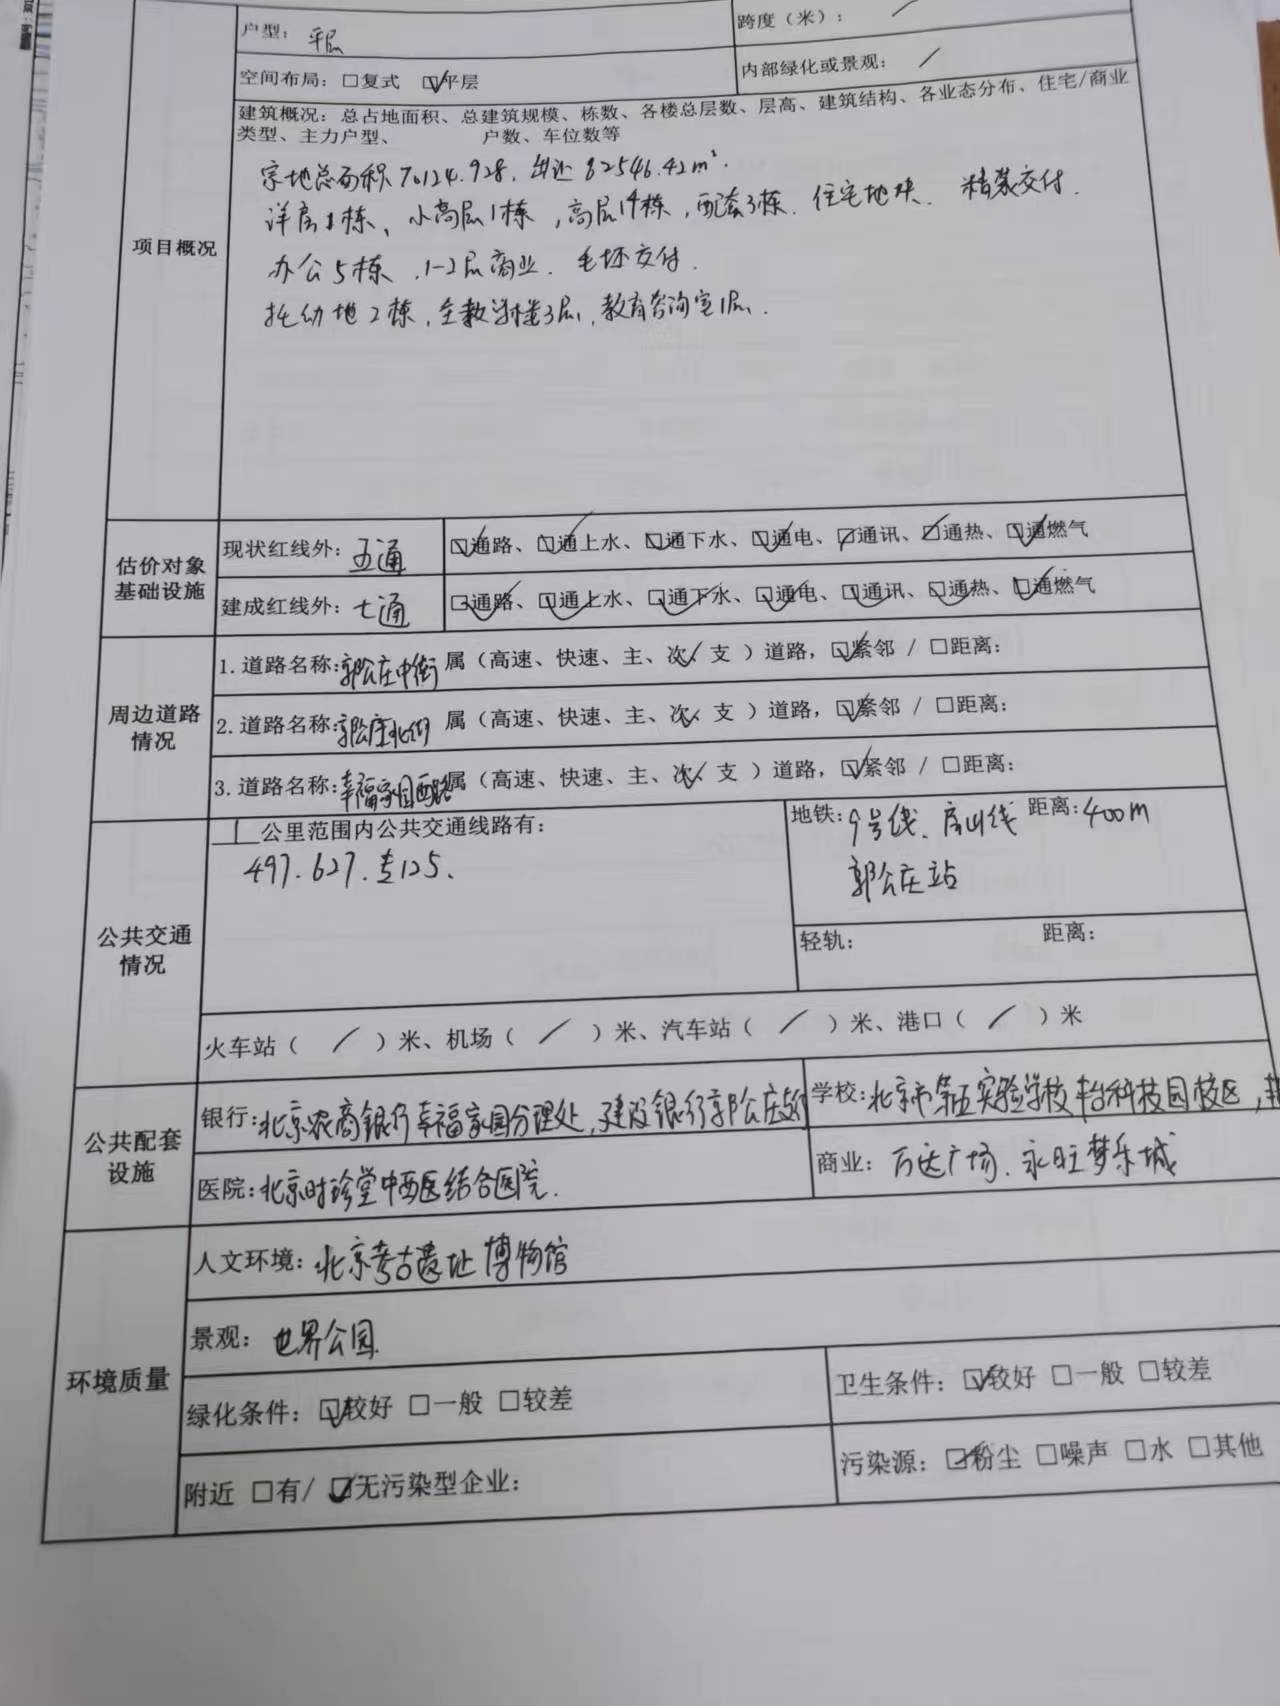 户型： 平层
跨度（米）： /
空间布局：□复式 ☑平层
内部绿化或景观： /
建筑概况：总占地面积、总建筑规模、栋数、各楼总层数、层高、建筑结构、各业态分布、住宅/商业
类型、主力户型、 户数、车位数等
项目概况
宗地总面积70124.928, 出让 62546.42m².
洋房1栋、小高层1栋,高层14栋,配套3栋.住宅地块. 精装交付.
办公5栋,1-2层商业. 毛坯交付.
托幼地2栋, 教学楼3层,教育咨询室1层.
估价对象
基础设施
现状红线外：五通
☑通路、☑通上水、☑通下水、☑通电、☑通讯、☑通热、☑通燃气
建成红线外：七通
☑通路、☑通上水、☑通下水、☑通电、☑通讯、☑通热、☑通燃气
周边道路
情况
1.道路名称:郭公庄中街 属（高速、快速、主、次✓、支 ）道路，☑紧邻 / □距离:
2.道路名称:郭公庄北街 属（高速、快速、主、次✓、支 ）道路，☑紧邻 / □距离:
3.道路名称:幸福家园西路 属（高速、快速、主、次✓、支 ）道路，☑紧邻 / □距离:
公共交通
情况
1 公里范围内公共交通线路有：
497.627.专125、
地铁：9号线、房山线 距离:400m
郭公庄站
轻轨： 距离:
火车站（ / ）米、机场（ / ）米、汽车站（ / ）米、港口（ / ）米
公共配套
设施
银行:北京农商银行幸福家园分理处,建设银行郭公庄支行
学校:北京市第五实验学校丰台科技园校区,
医院:北京时珍堂中西医结合医院.
商业：万达广场、永旺梦乐城
环境质量
人文环境：北京考古遗址博物馆
景观：世界公园.
绿化条件：☑较好 □一般 □较差
卫生条件：☑较好 □一般 □较差
附近 □有/ ☑无污染型企业：
污染源：☑粉尘 □噪声 □水 □其他